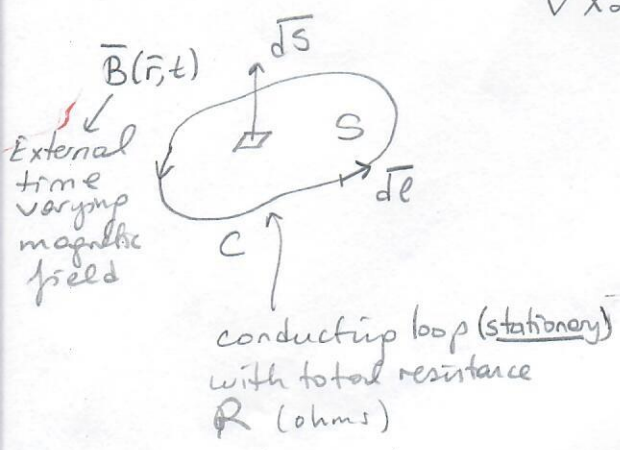 ∇ ×
d̅S̅
B̅(r̅,t)
External
time
varying
magnetic
field
S
d̅l̅
C
conducting loop (stationary)
with total resistance
R (ohms)